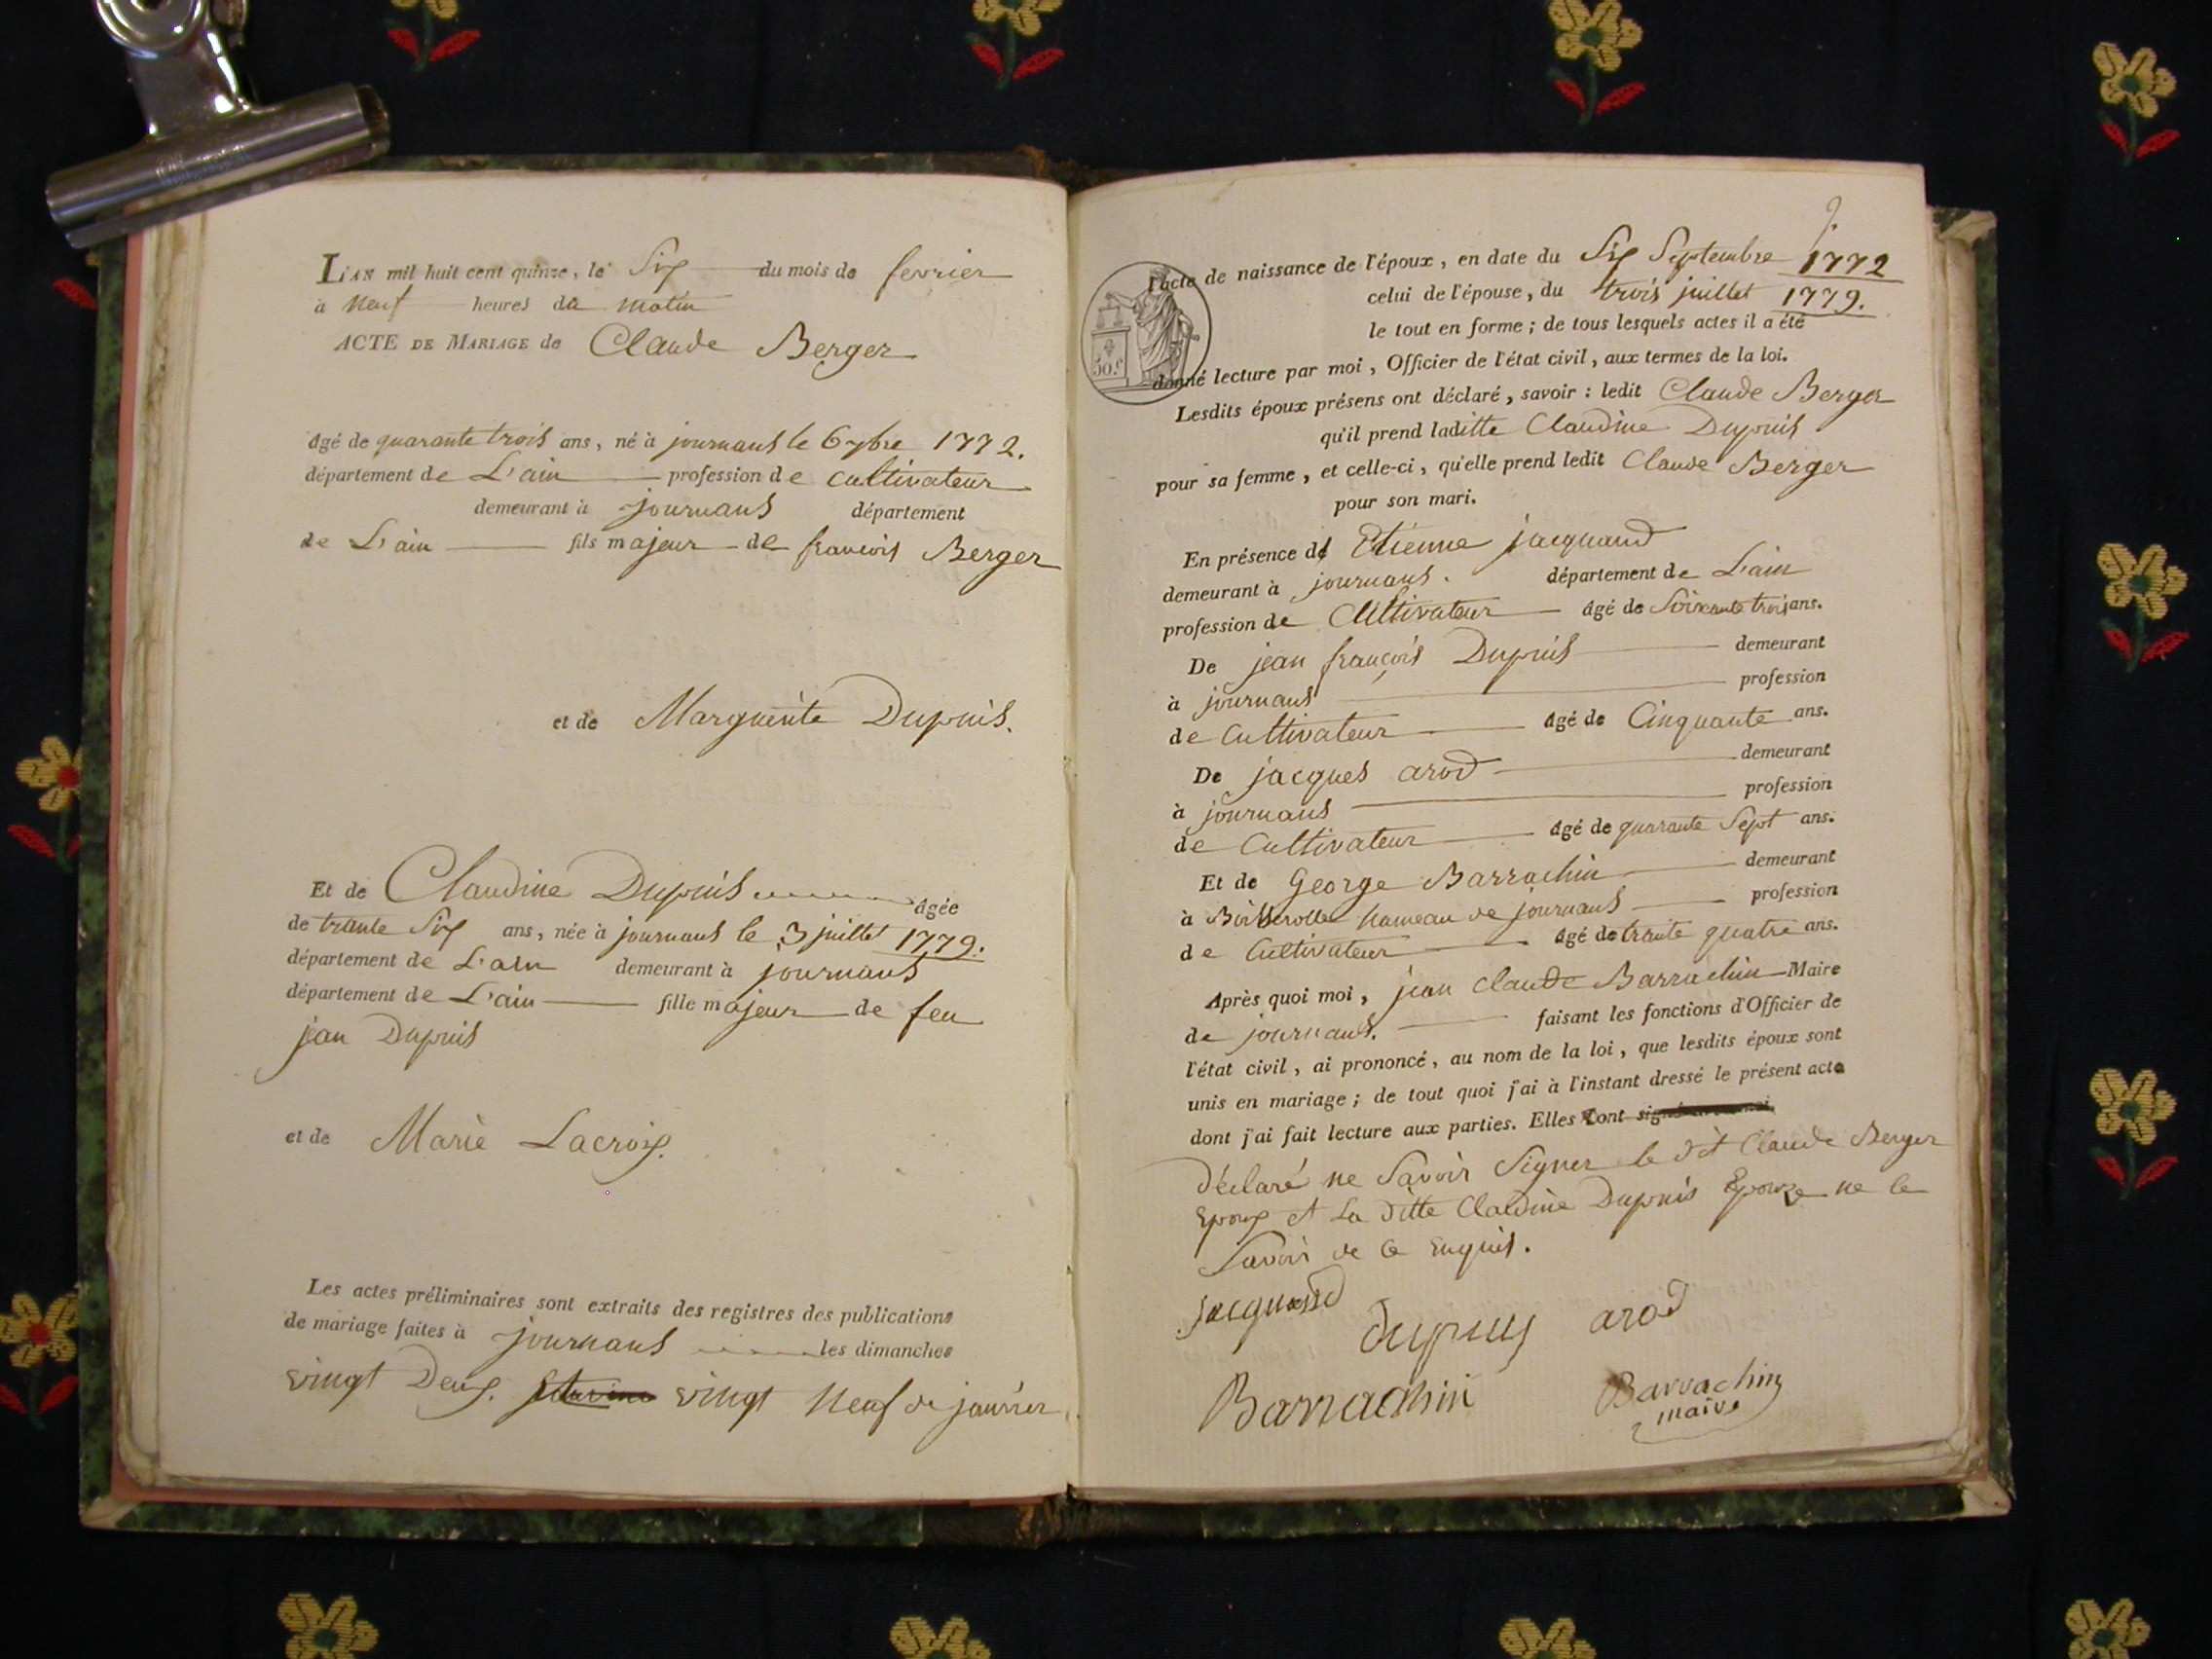 L'AN mil huit cent quinze, le Six du mois de fevrier
à neuf heures du matin
ACTE DE MARIAGE de Claude Berger
âgé de quarante trois ans, né à journans le 6 7bre 1772.
département de L'ain profession de cultivateur
demeurant à journans département
de L'ain fils majeur de francois Berger
et de Marguerite Dupuis.
Et de Claudine Dupuis âgée
de trante Six ans, née à journans le 3 juillet 1779.
département de L'ain demeurant à journans
département de L'ain fille majeur de feu
jean Dupuis
et de Marie Lacroix.
Les actes préliminaires sont extraits des registres des publications
de mariage faites à journans les dimanches
vingt Deux. vingt neuf de janvier
l'acte de naissance de l'époux, en date du Six Septembre 1772
celui de l'épouse, du trois juillet 1779.
le tout en forme ; de tous lesquels actes il a été
donné lecture par moi, Officier de l'état civil, aux termes de la loi.
50.c
Lesdits époux présens ont déclaré, savoir : ledit Claude Berger
qu'il prend laditte Claudine Dupuis
pour sa femme, et celle-ci, qu'elle prend ledit Claude Berger
pour son mari.
En présence de Etienne jacquand
demeurant à journans. département de L'ain
profession de Cultivateur âgé de Soixante trois ans.
De jean françois Dupuis demeurant
à journans profession
de Cultivateur âgé de Cinquante ans.
De jacques arod demeurant
à journans profession
de Cultivateur âgé de quarante Sept ans.
Et de George Barrachin demeurant
à hameau de journans profession
de Cultivateur âgé de trante quatre ans.
Après quoi moi, jean claude Barrachin Maire
de journans. faisant les fonctions d'Officier de
l'état civil, ai prononcé, au nom de la loi, que lesdits époux sont
unis en mariage ; de tout quoi j'ai à l'instant dressé le présent acte
dont j'ai fait lecture aux parties. Elles ont
déclaré ne Savoir Signer le dit Claude Berger
Epoux et La ditte Claudine Dupuis Epouze ne le
Savoir de ce Enquis.
jacquand
dupuis arod
Barrachin Barrachin
maire